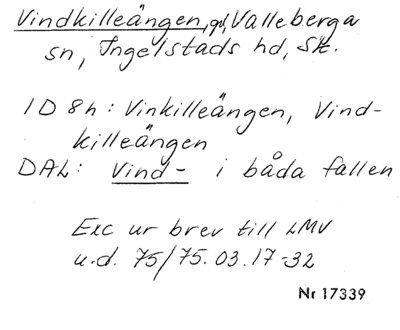 Vindkilleängen, gd, Valleberga
sn, Ingelstads hd, Sk.
1D 8h: Vinkilleängen, Vind-
killeängen
DAL: Vind- i båda fallen
Exc ur brev till LMV
u.d. 75/75.03.17-32
Nr 17339